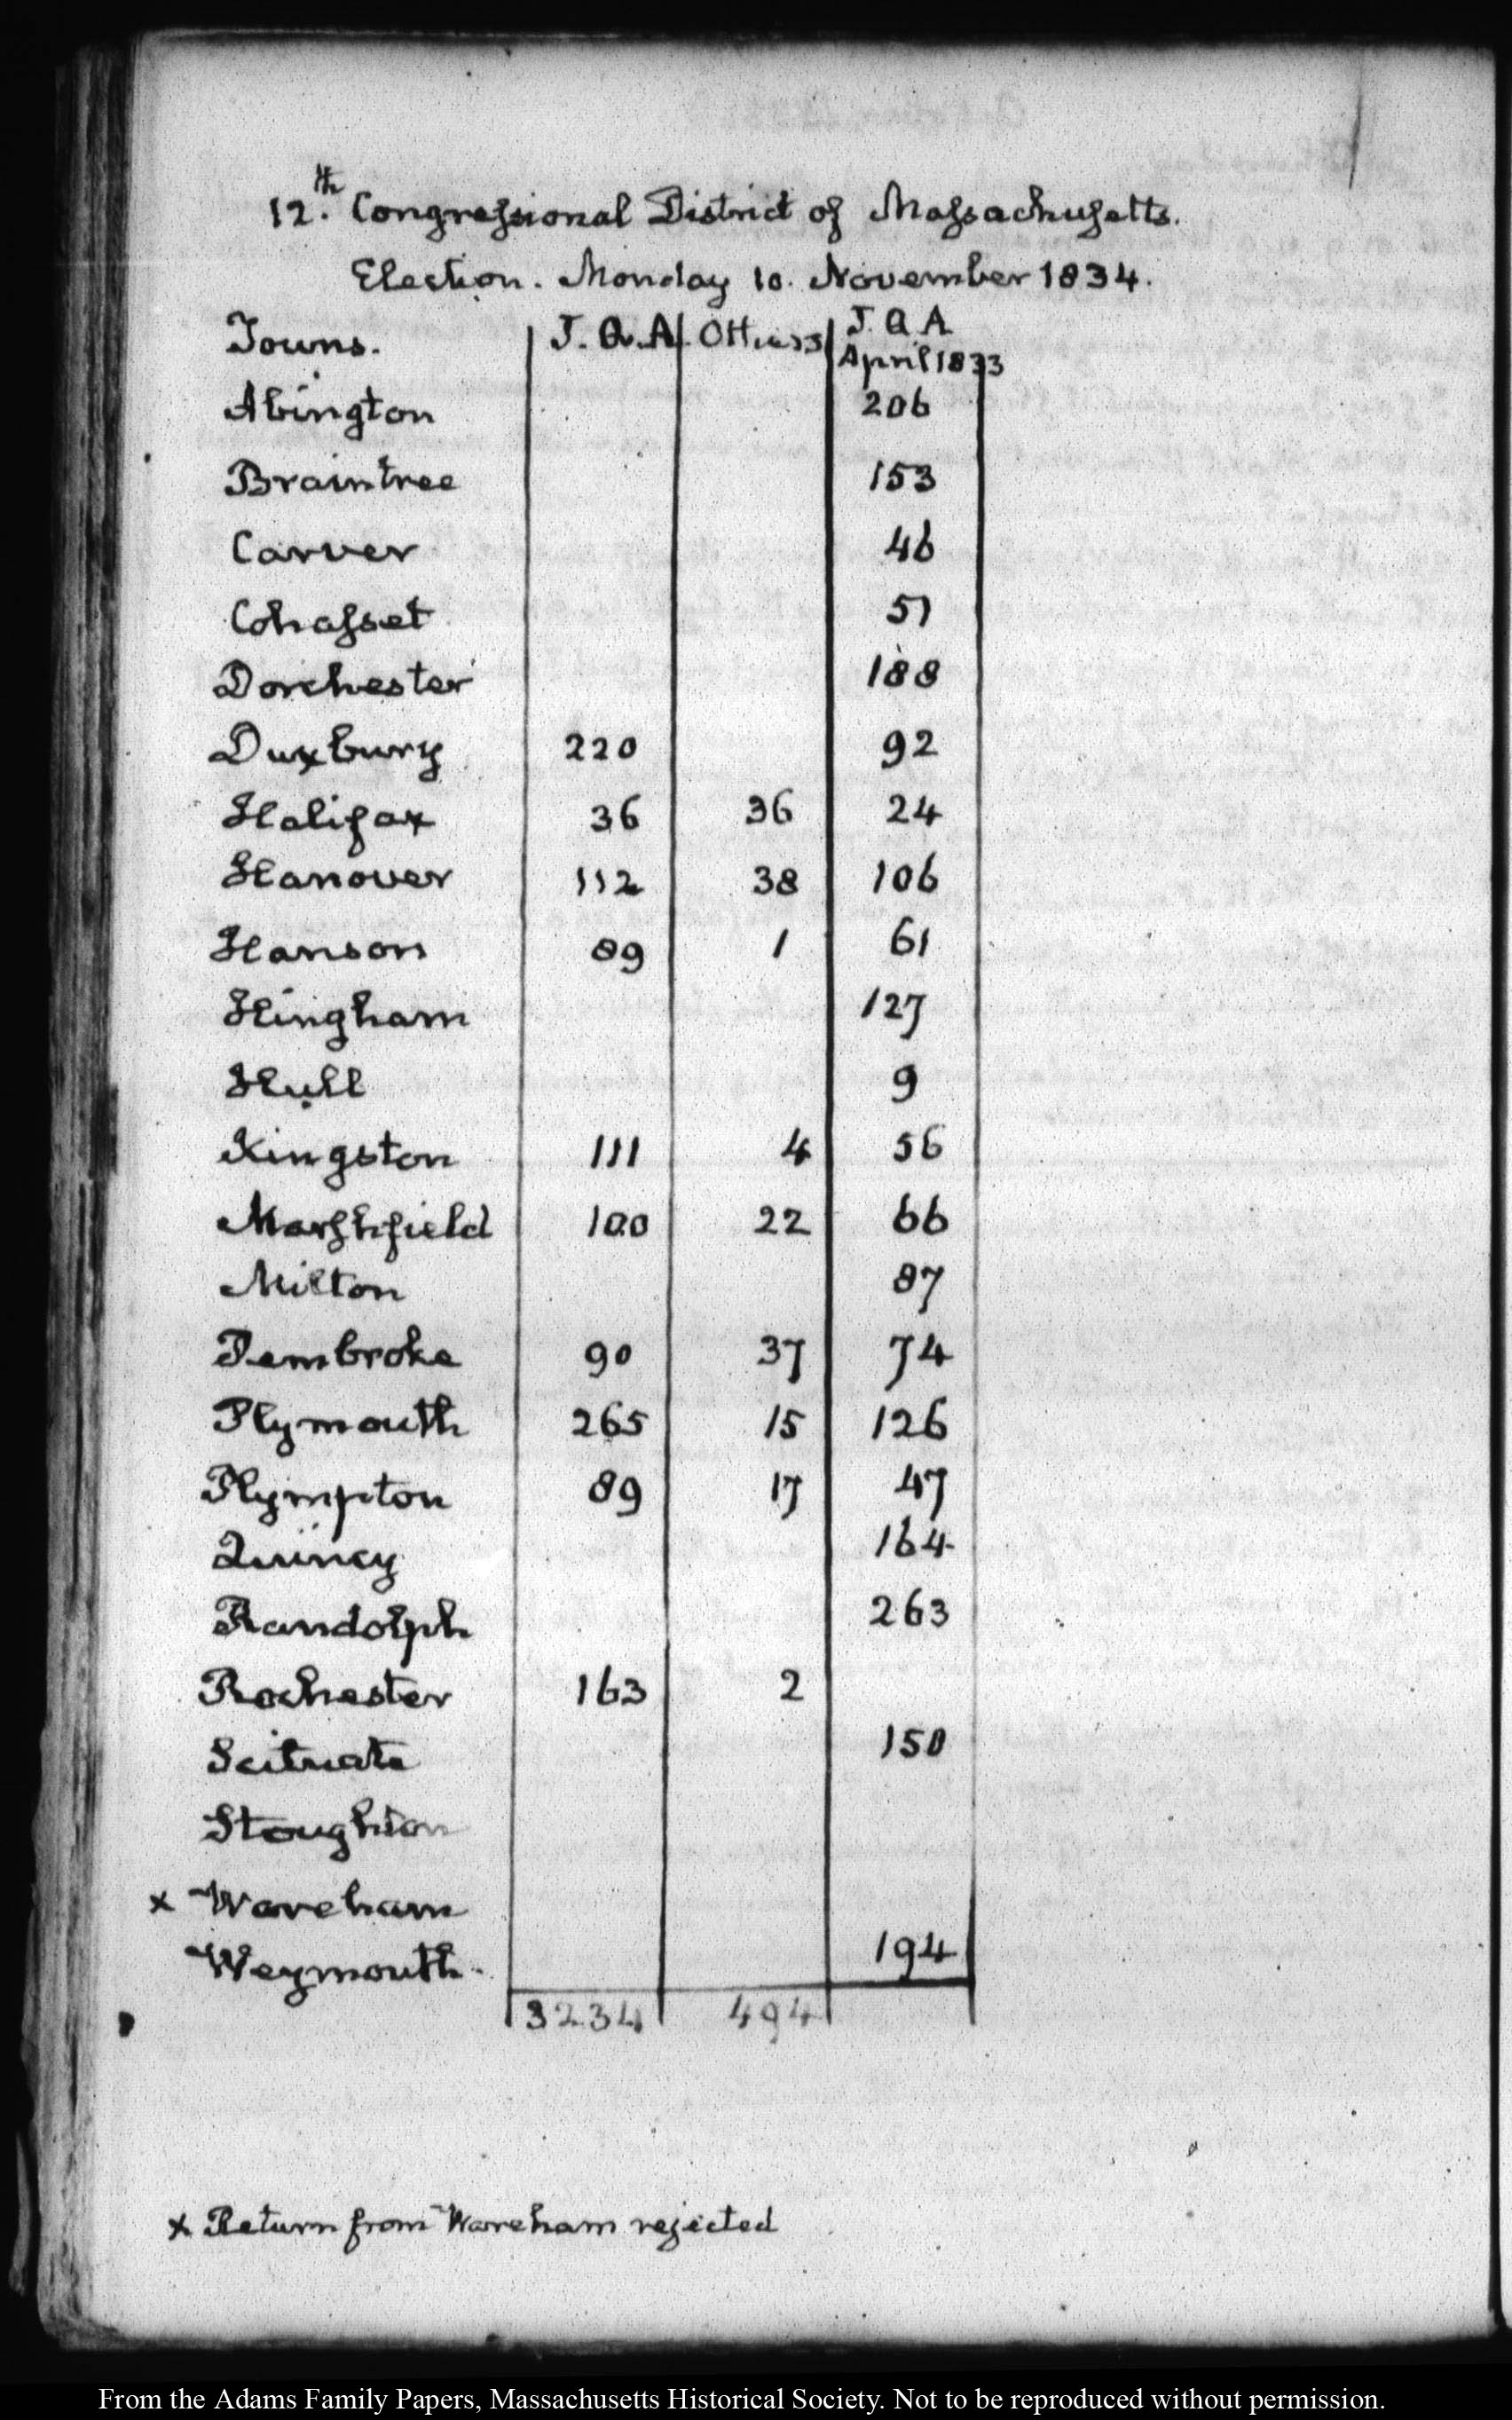 12.th Congressional District of Massachusetts.
Election. Monday 10. November 1834.
Towns. J. Q. A. Others J. Q A April 1833
Abington 206
Braintree 153
Carver 46
Cohasset 51
Dorchester 188
Duxbury 220 92
Halifax 36 36 24
Hanover 112 38 106
Hanson 89 1 61
Hingham 127
Hull 9
Kingston 111 4 56
Marshfield 100 22 66
Milton 87
Pembroke 90 37 74
Plymouth 265 15 126
Plympton 89 17 47
Quincy 164
Randolph 263
Rochester 163 2
Scituate 150
Stoughton
x Wareham
Weymouth. 194
3234 494
x Return from Wareham rejected
From the Adams Family Papers, Massachusetts Historical Society. Not to be reproduced without permission.